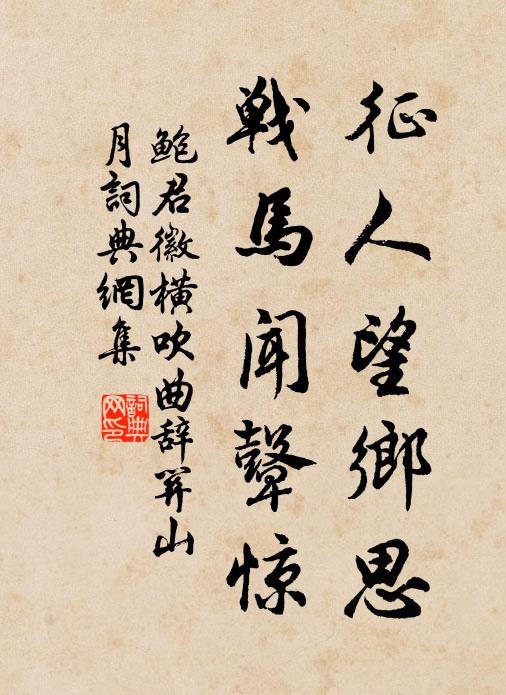 征人望鄉思
戰馬聞鼙惊
鮑君徽橫吹曲辞関山
月詞典網集
詞典
网印